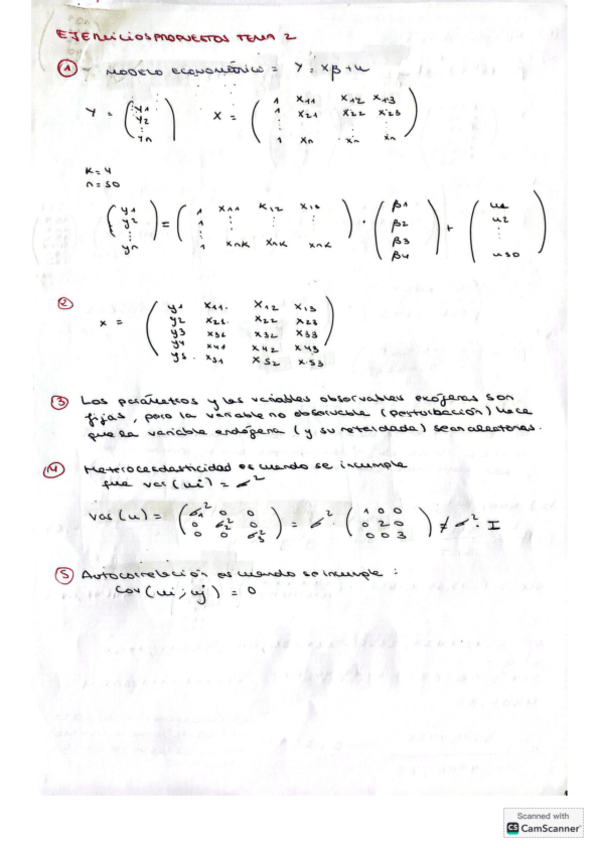 EJERCICIOS PROPUESTOS TEMA 2
① - MODELO ECONOMÉTRICO = Y = Xβ + u
Y = ( y1 y2 ⋮ yn ) X = ( 1 x11 x12 x13
1 x21 x22 x23
⋮ ⋮ ⋮ ⋮
1 xn xn xn )
K = 4
n = 50
( y1 y2 ⋮ yn ) = ( 1 x11 x12 x13
⋮ ⋮ ⋮ ⋮
1 xnk xnk xnk ) · ( β1 β2 β3 β4 ) + ( u1 u2 ⋮ u50 )
② x = ( y1 x11 x12 x13
y2 x21 x22 x23
y3 x31 x32 x33
y4 x41 x42 x43
y5 x51 x52 x53 )
③ Los parámetros y las variables observables exógenas son
fijas, pero la variable no observable (perturbación) hace
que la variable endógena (y su retardada) sean aleatorias.
④ Heterocedasticidad es cuando se incumple
que var(ui) = σ²
var(u) = ( σ1² 0 0
0 σ2² 0
0 0 σ3² ) = σ² · ( 1 0 0
0 2 0
0 0 3 ) ≠ σ² · I
⑤ Autocorrelación es cuando se incumple :
Cov(ui; uj) = 0
Scanned with
CS CamScanner